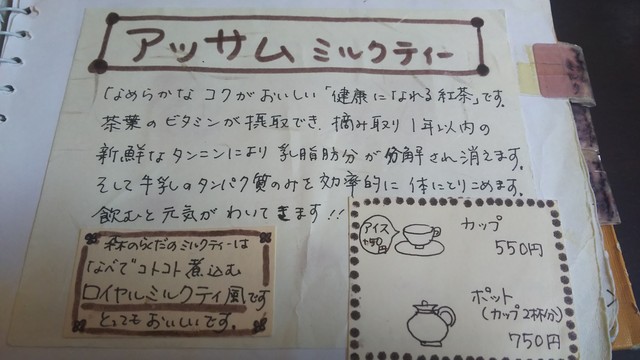 アッサム ミルクティー
なめらかな コクがおいしい「健康になれる紅茶」です。
茶葉のビタミンが摂取でき、摘み取り1年以内の
新鮮なタンニンにより 乳脂肪分が分解され消えます。
そして牛乳のタンパク質のみを効率的に 体にとりこめます。
飲むと元気が わいてきます!!
森のらくだのミルクティーは
なべでコトコト煮込む
ロイヤルミルクティ風です
とってもおいしいです。
アイス
+50円
カップ
550円
ポット
(カップ2杯分)
750円